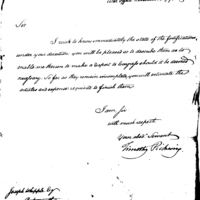 Sir
I wish to know immediately the state of the fortifications
under your direction you will be pleased so to describe them as to
enable me thereon to make a report to Congress should it be deemed
necessary. So far as they remain incomplete, you will estimate the
articles and expences requisite to finish them.
I am Sir
with much respect
your obed Servant
Timothy Pickering
Joseph Whipple Esq